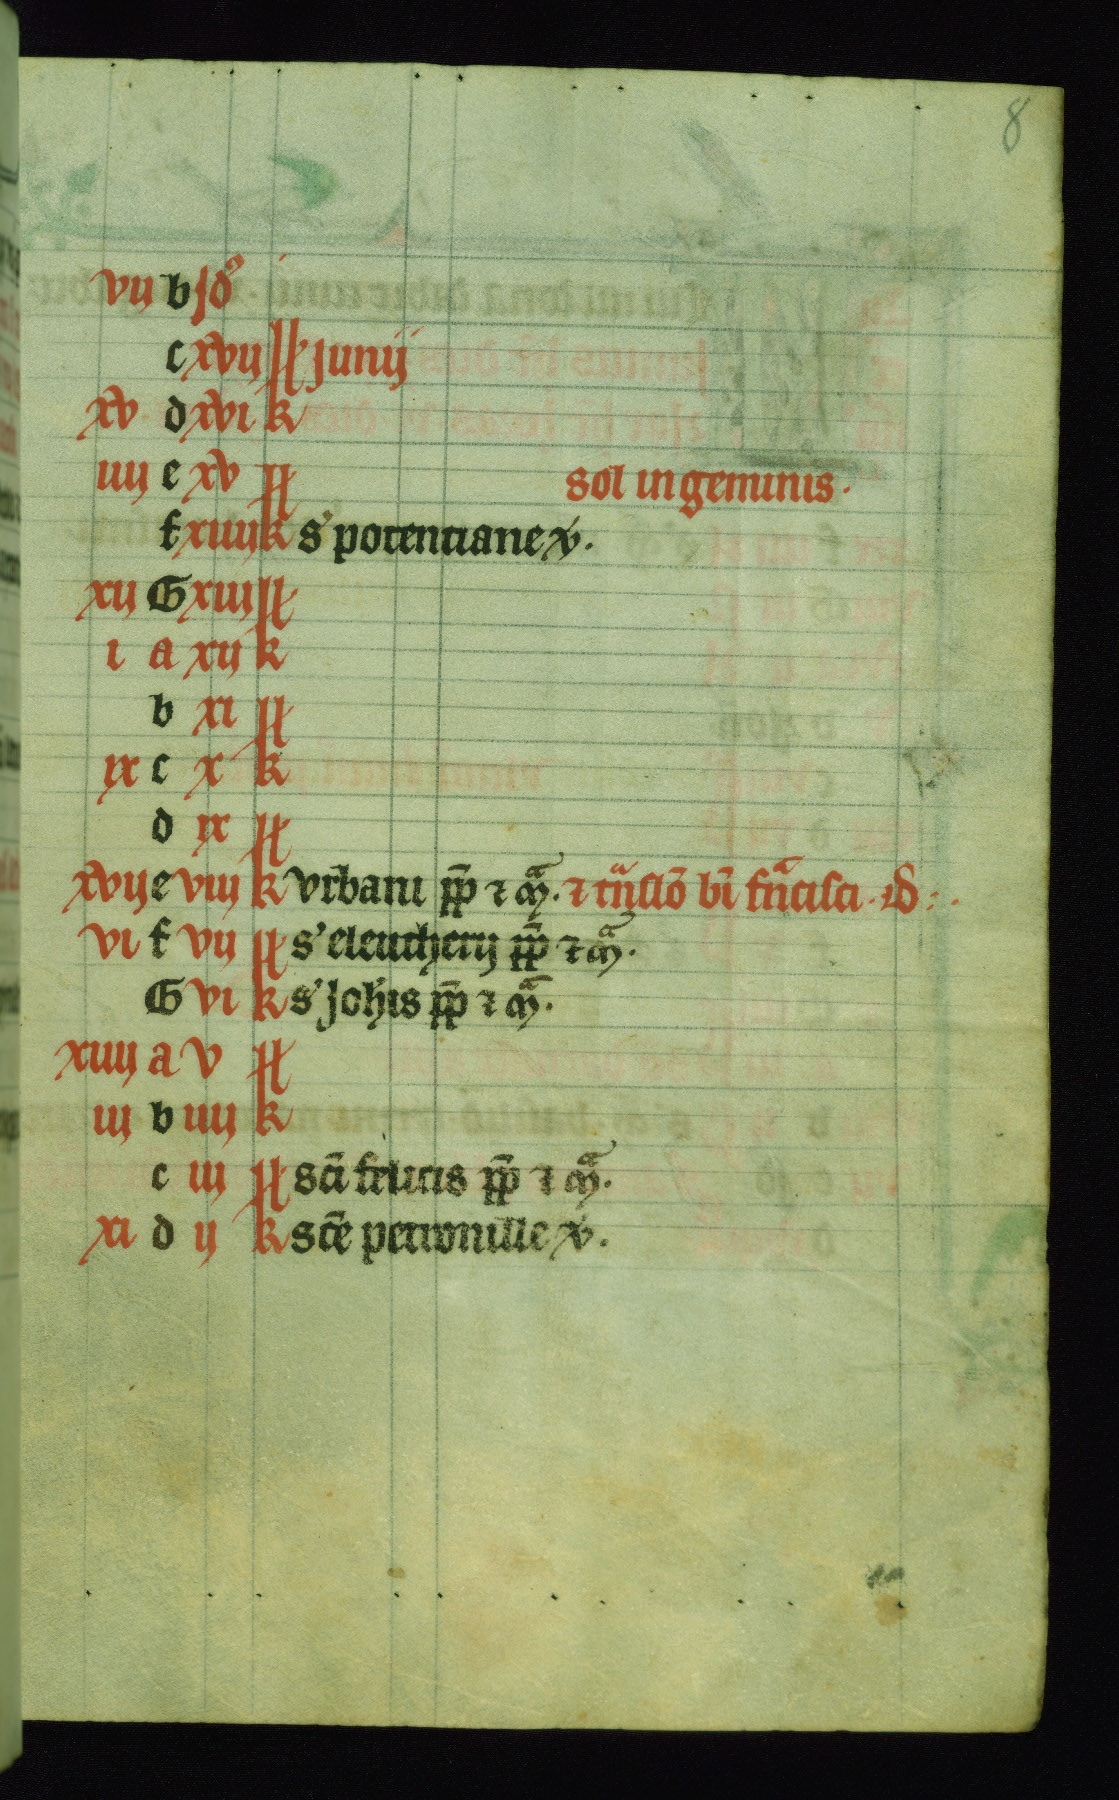 8
vii b Id᷒
c xvii kł Junij
xv d xvi k
iiii e xv kł sol in geminis.
f xiiii k s' potentiane v̓.
xii G xiii kł
i a xii k
b xi kł
ix c x k
d ix kł
xvii e viii k vrbani pp̄ ⁊ m̄. ⁊ tn̄slō bī fn̄cisci. d
vi f vii kł s' eleutherij pp̄ ⁊ m̄.
G vi k s' Joh̄is pp̄ ⁊ m̄.
xiiii a v kł
iii b iiii k
c iii kł sc̄i felicis pp̄ ⁊ m̄.
xi d ii k sc̄e petronille v̓.